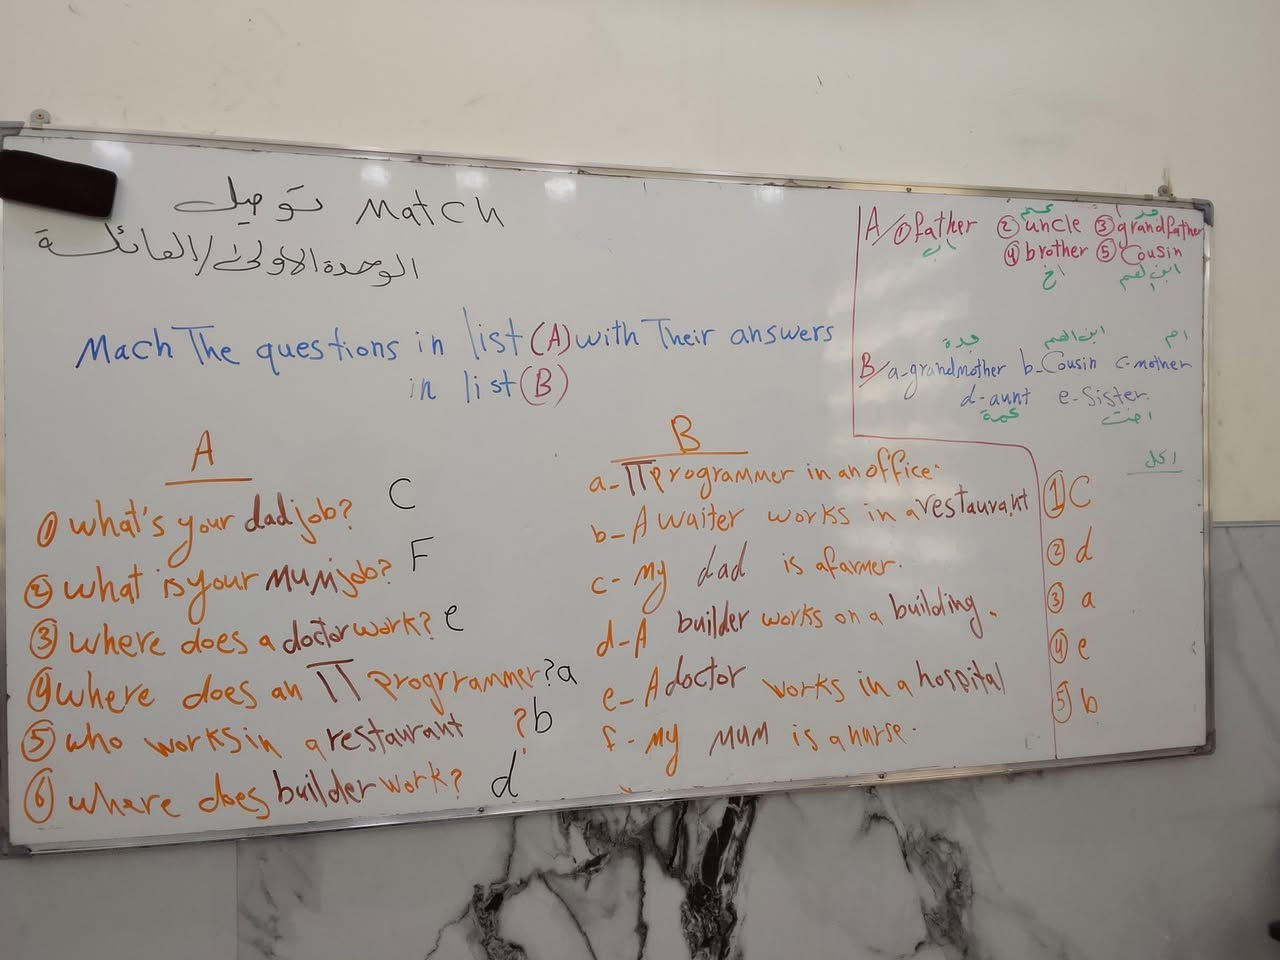 توصيل Match
الوحدة الاولى / العائلة
Mach The questions in list (A) with Their answers
in list (B)
A
① what's your dad job? C
② what is your mum job? F
③ where does a doctor work? e
④ where does an IT progrrammer? a
⑤ who works in a restaurant ? b
⑥ where does builder work? d
B
a- IT programmer in an office.
b- A waiter works in a restaurant
c- my dad is a farmer.
d- A builder works on a building.
e- A doctor works in a hospital
f- my mum is a nurse.
عم جد
A/ ① father ② uncle ③ grandfather
اب
④ brother ⑤ Cousin
اخ ابن العم
جدة ابن العم ام
B/ a- grandmother b- Cousin c- mother
d- aunt e- Sister.
عمة اخت
① C
② d
③ a
④ e
⑤ b